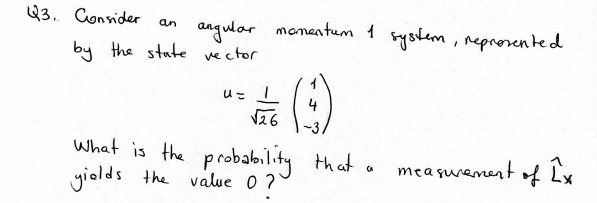 Q3. Consider an angular momentum 1 system, represented
by the state vector
u = 1/√26 (1 4 -3)
What is the probability that a measurement of L̂x
yields the value 0?